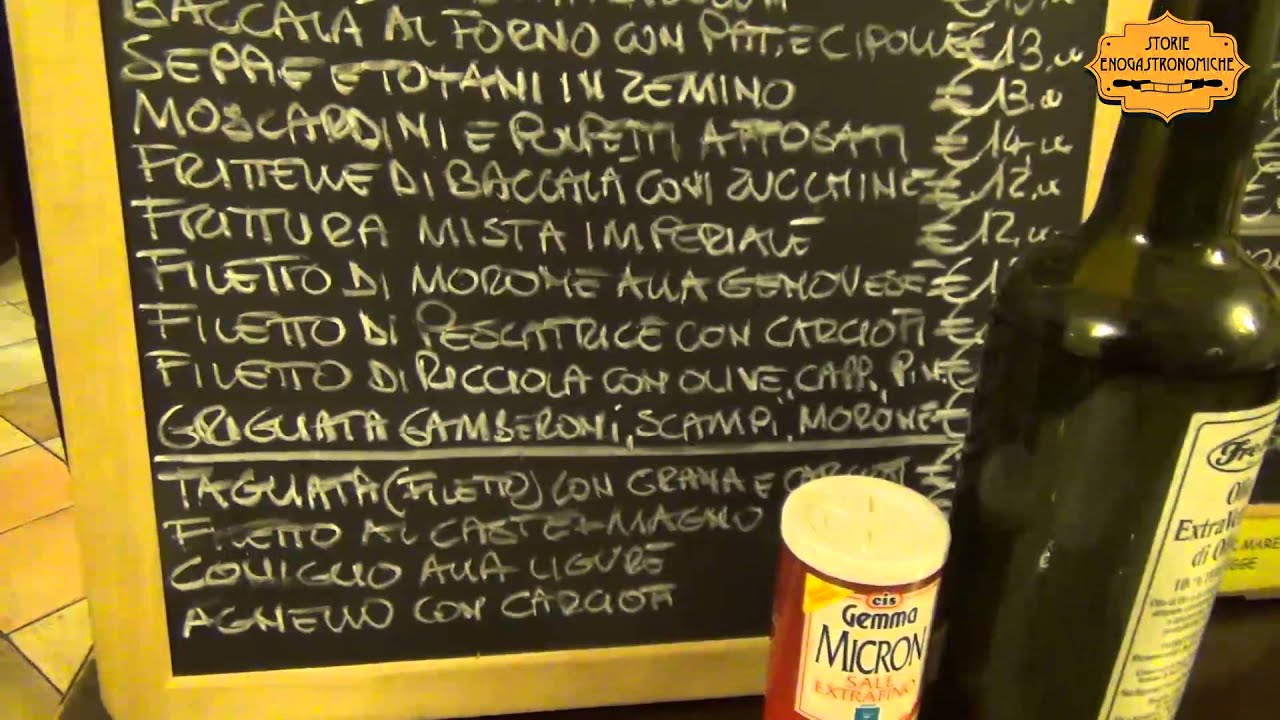 BACCALA AL FORNO CON PAT, E CIPOLLE €13,00
SEPPIE E TOTANI IN ZEMINO €13,00
MOSCARDINI E POLPETTI AFFOGATI €14,00
FRITTELLE DI BACCALA CON ZUCCHINE €12,00
FRITTURA MISTA IMPERIALE €12,00
FILETTO DI MORONE ALLA GENOVESE €
FILETTO DI PESCATRICE CON CARCIOFI €
FILETTO DI RICCIOLA CON OLIVE, CAPP, PIN. €
GRIGLIATA GAMBERONI, SCAMPI, MORONE €
TAGLIATA (FILETTO) CON GRANA E CARCIOFI
FILETTO AL CASTELMAGNO
CONIGLIO ALLA LIGURE
AGNELLO CON CARCIOFI
STORIE
ENOGASTRONOMICHE
cis
Gemma
MICRON
SALE
EXTRAFINO
Extra
di
MARE